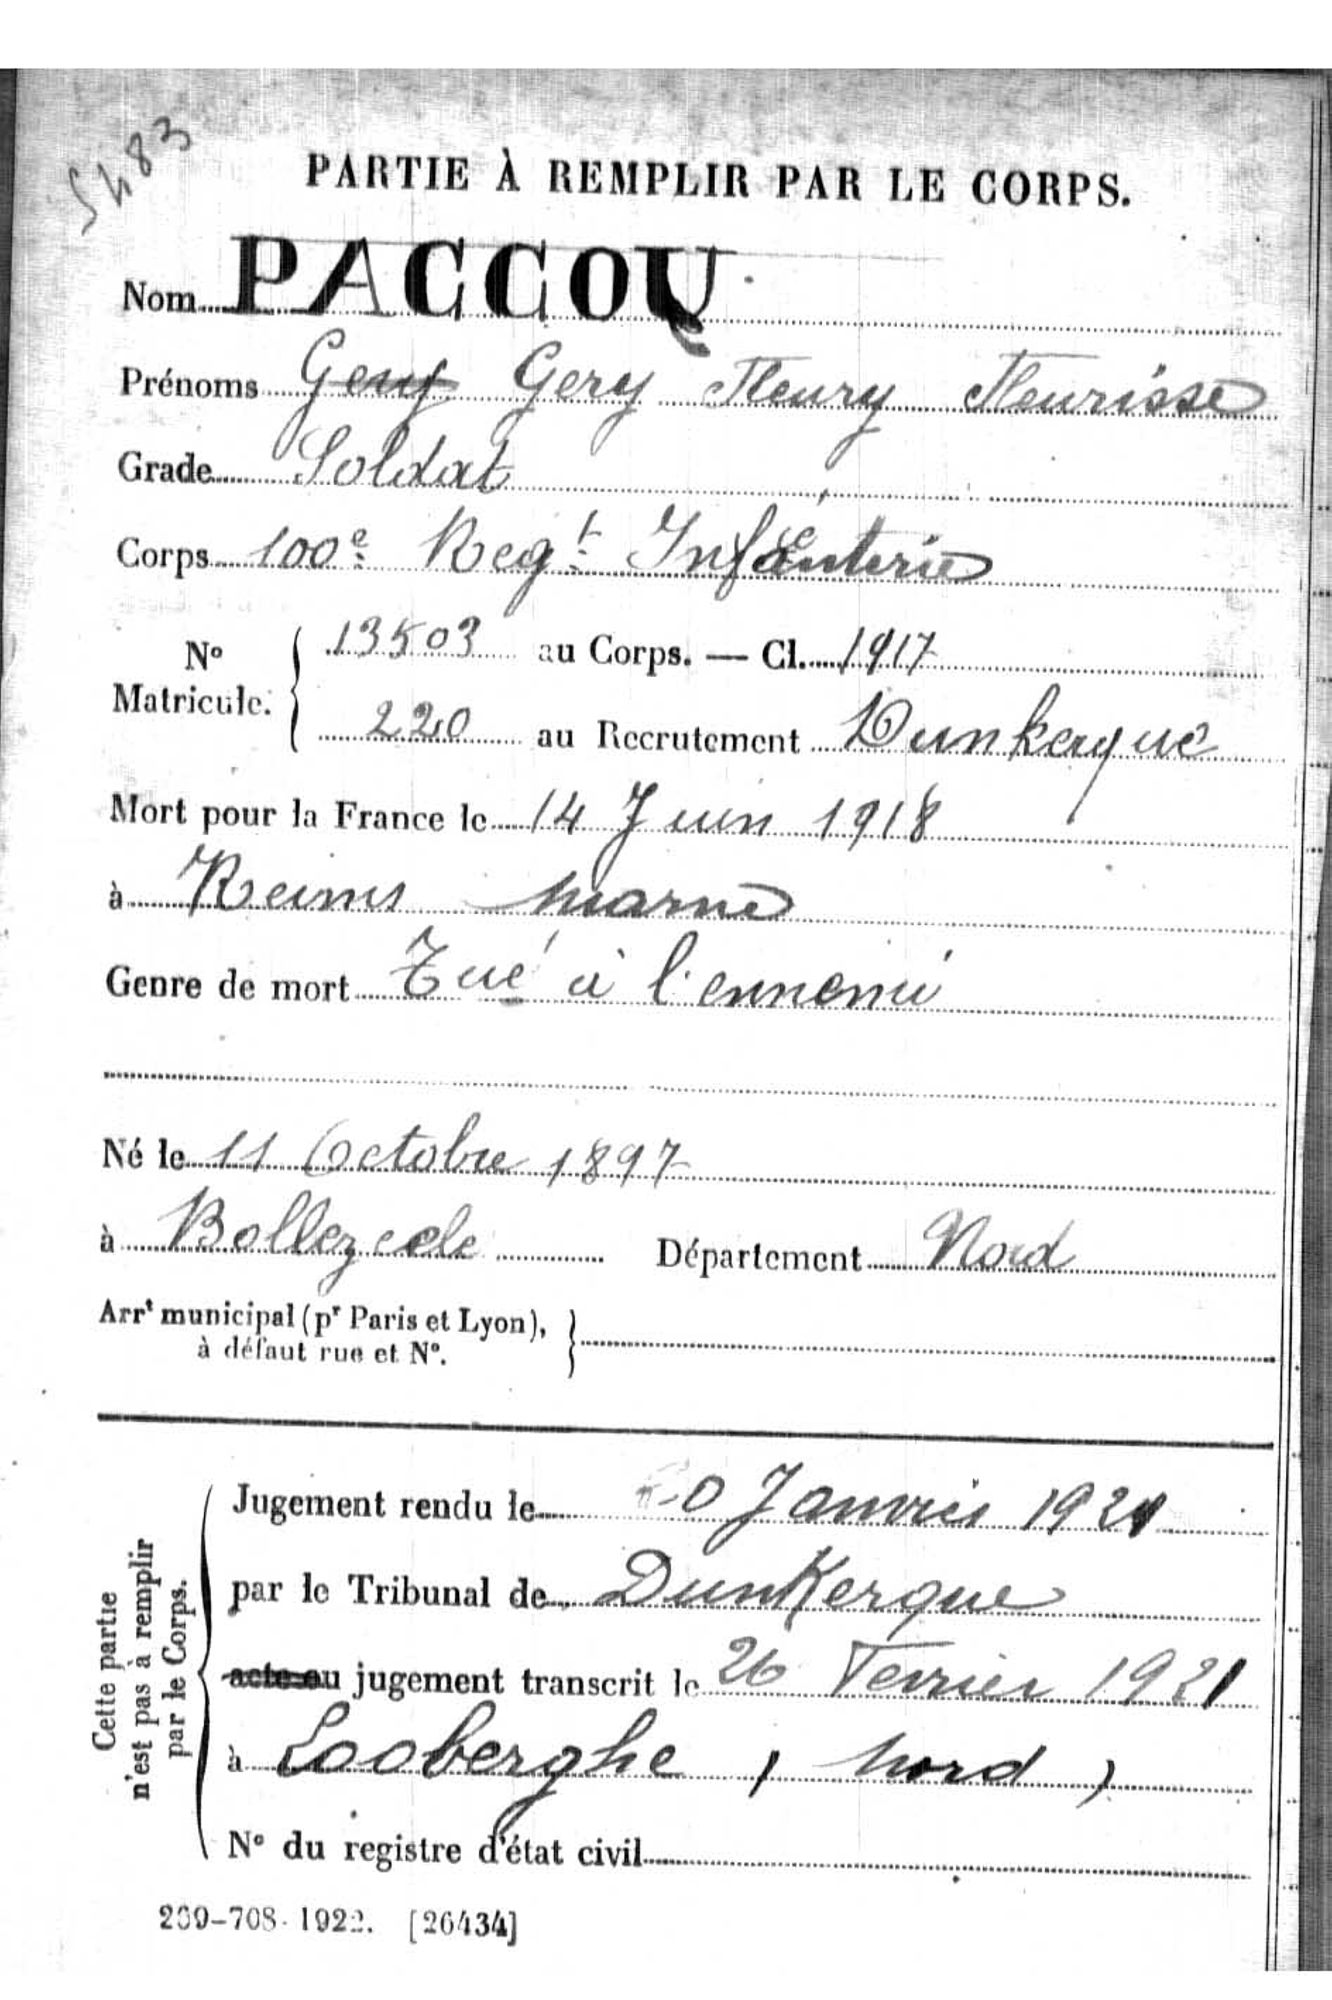 5483
PARTIE À REMPLIR PAR LE CORPS.
Nom PACCOU
Prénoms Gery Gery Fleury Fleurisse
Grade Soldat
Corps 100e Regt Infanterie
No Matricule. { 13503 au Corps. — Cl. 1917
220 au Recrutement Dunkerque
Mort pour la France le 14 Juin 1918
à Reims Marne
Genre de mort Tué à l'ennemi
Né le 11 Octobre 1897
à Bollezeele Département Nord
Arrt municipal (pr Paris et Lyon),
à défaut rue et No. }
Cette partie n'est pas à remplir par le Corps.
Jugement rendu le Janvier 1921
par le Tribunal de Dunkerque
acte ou jugement transcrit le 26 Fevrier 1921
à Looberghe (Nord)
No du registre d'état civil
269-708-1922. [26434]